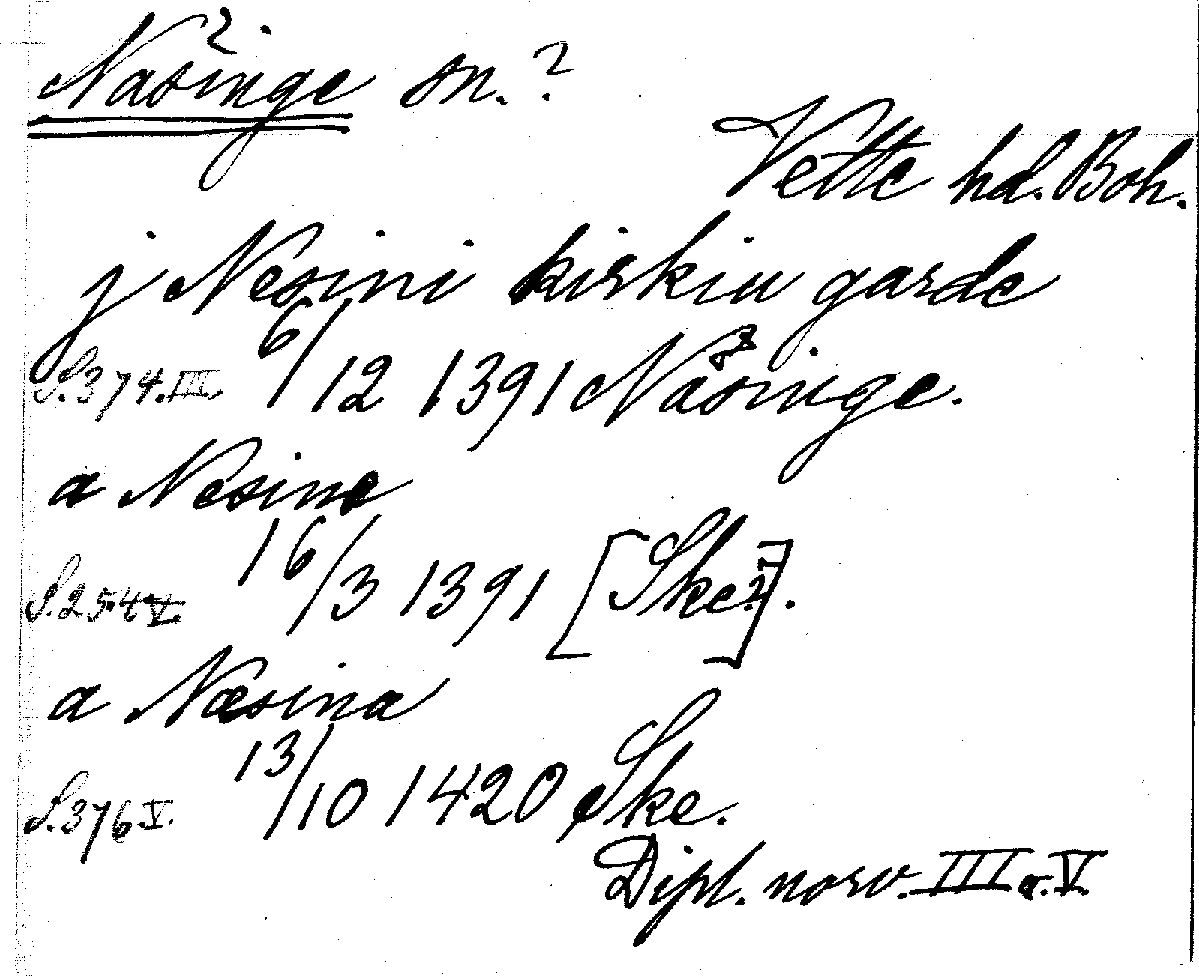 Näsinge sn.?
Vette hd. Boh.
j Nesini kirkiu garde
S.374.III. 6/12 1391 Näsinge.
a Nesine
S.254 V. 16/3 1391 [Ske?].
a Næsina
S.376 V. 13/10 1420 Ske.
Dipl. norv. III o. V.